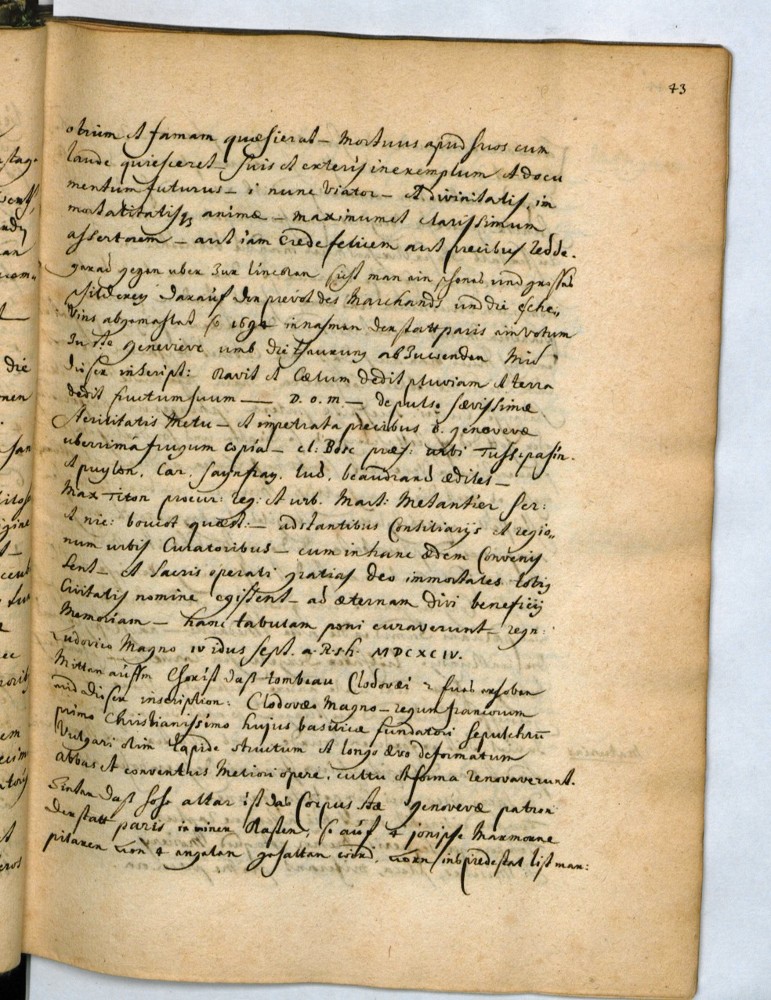 43
obium et famam quæsierat – Mortuus apud suos cum
laude quiesceret – suis et exteris in exemplum et docu
mentum futurus – i nunc Viator – et divinitatis, im
mortalitatisq animæ – maximum et clarissimum
assertorem – aut iam crede felicem aut precibus redde.
gerad gegen uber zur lincken siest man ein schönes und grosses
schilderey darauf der prevot des Marchands und die Esche„
vins abgemahlet so 1694 in nahmen der statt paris ein votum
zu ste genevieve umb die theurung abzuwenden Mit
dieser inscript: Ravit et Cælum dedit pluviam et terra
dedit fructum suum — D. o. m – depulso sævissimæ
sterititatis Metu – et impetrata precibus B. genovevæ
uberrima frugum copia – cl: Bosc præf: urbi Tuss. pasin.
et puylon. Car. Saynfray. lud. beaudrand ædiles –
Max Titon procur: reg: et urb. Mart: Metantier scr:
et nic: boucot quæst: – adstantibus Consiliarijs et regio„
num urbis Curatoribus – cum in hanc ædem Convenis
sent – et sacris operati gratias deo immortales totis
Civitatis nomine egissent – ad æternam divi beneficij
Memoriam – hanc tabulam poni curaverunt – regn:
Ludovico Magno IV idus sept. a. R. sh. MDCXCIV.
Mitten auffm Chor ist dass tombeau Clodovæi 2 fues erhoben
mit dieser inscription: Clodovæo Magno – regum francorum
primo Christianissimo hujus basilicæ fundatori sepulchru
Vulgari olim lapide structum et longo ævo deformatum
abbas et conventus Meliori opere, cultu et forma renovaverunt.
hinter dass hohe altar ist das Corpus Stæ genovevæ patron
der statt paris in einer Kasten, so auf 4 jonische Marmorne
pilaren von 4 angelen gehalten wird, vorn ins predestal list man: